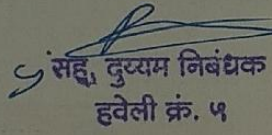 सह, दुय्यम निबंधक
हवेली क्रं. ५